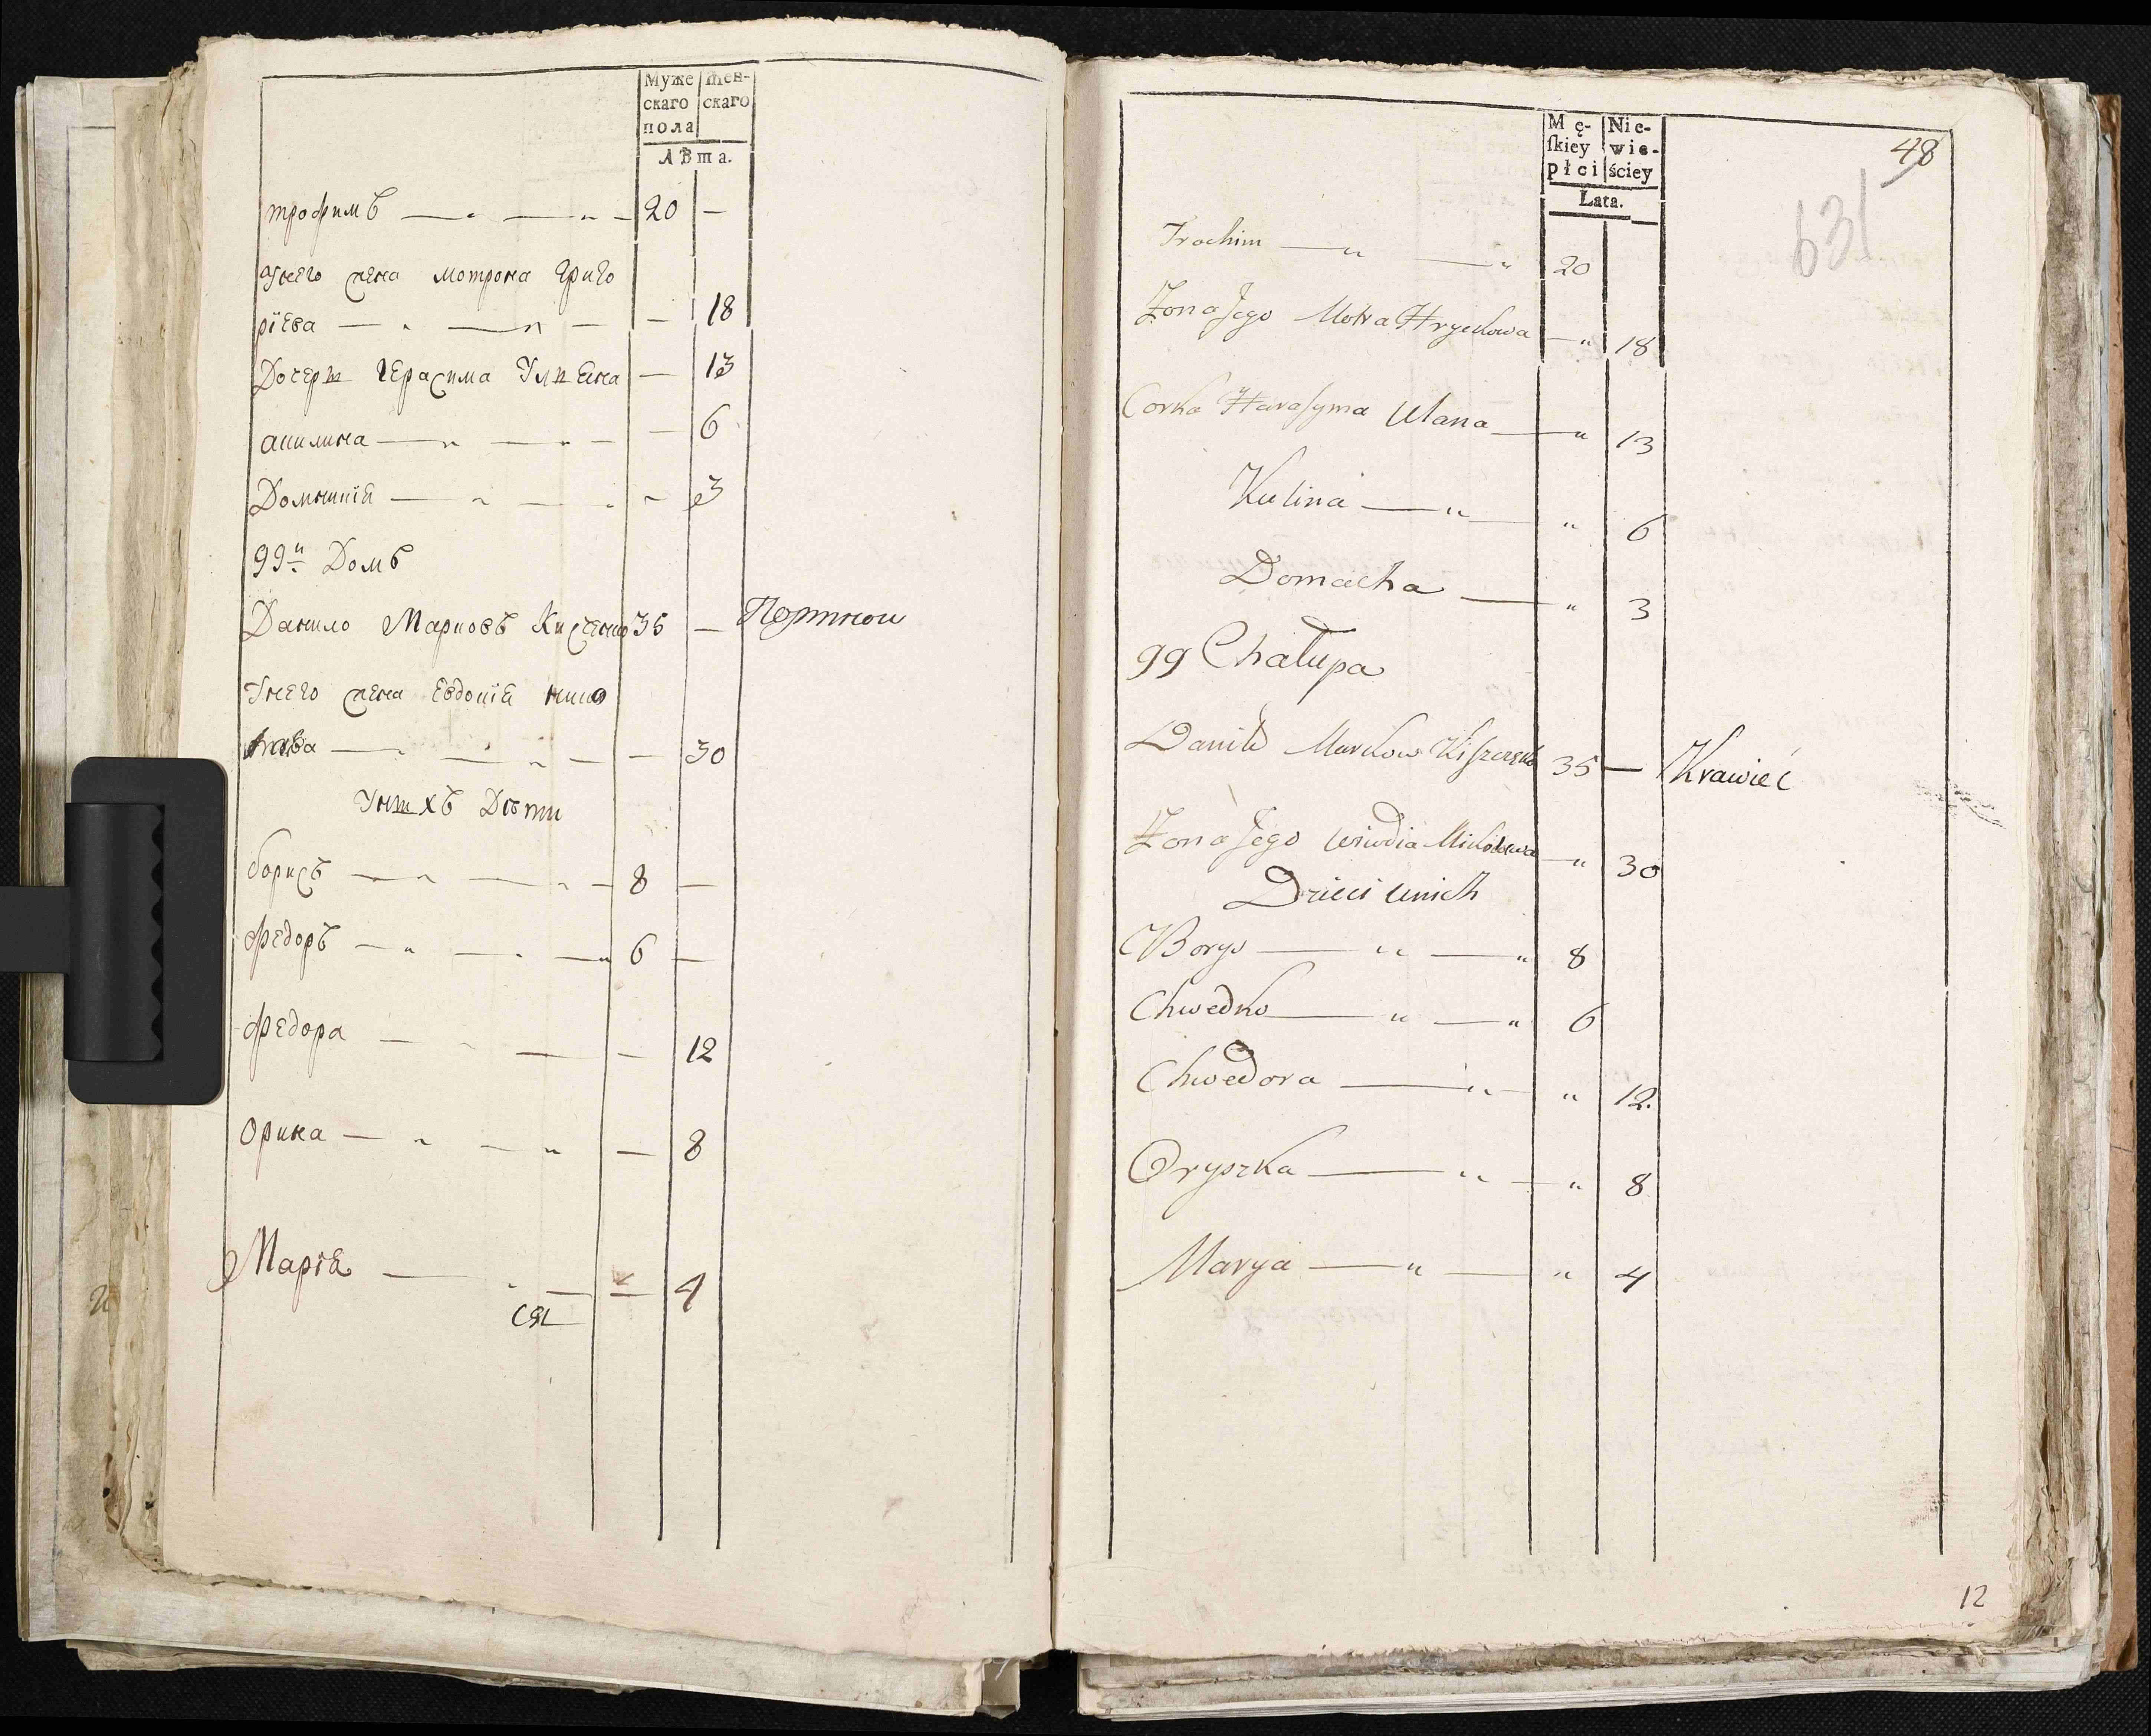 Муже
скаго
пола
Жен-
скаго
Лѣта.
трофимъ — 20 —
Унего жена мотрона Григо
ріева — — 18
Дочери Герасима Улиена — 13
акилина — — 6
Домникія — 3
99й Домъ
Данило Марковъ 35 — Портной
Унего жена Евдокія
— — 30
Унихъ Дѣти
борисъ — 8 —
Федоръ — 6 —
Федора — — 12
Орина — — 8
Маріа — — 4
Mę-
ſkiey
płci
Nie-
wie-
ściey
Łata.
48
631
Trochim — 20
Zona Jego Motra Hryckowa — 18
Corka Haraſyma Ulana — 13
Kulina — 6
Domacha — 3
99 Chałupa
Daniło Markow 35 — Krawieć
Zona Jego Wiwdia — 30
Dzieci unich
Borys — 8
Chwedko — 6
Chwedora — 12.
Oryszka — 8
Marya — 4
12